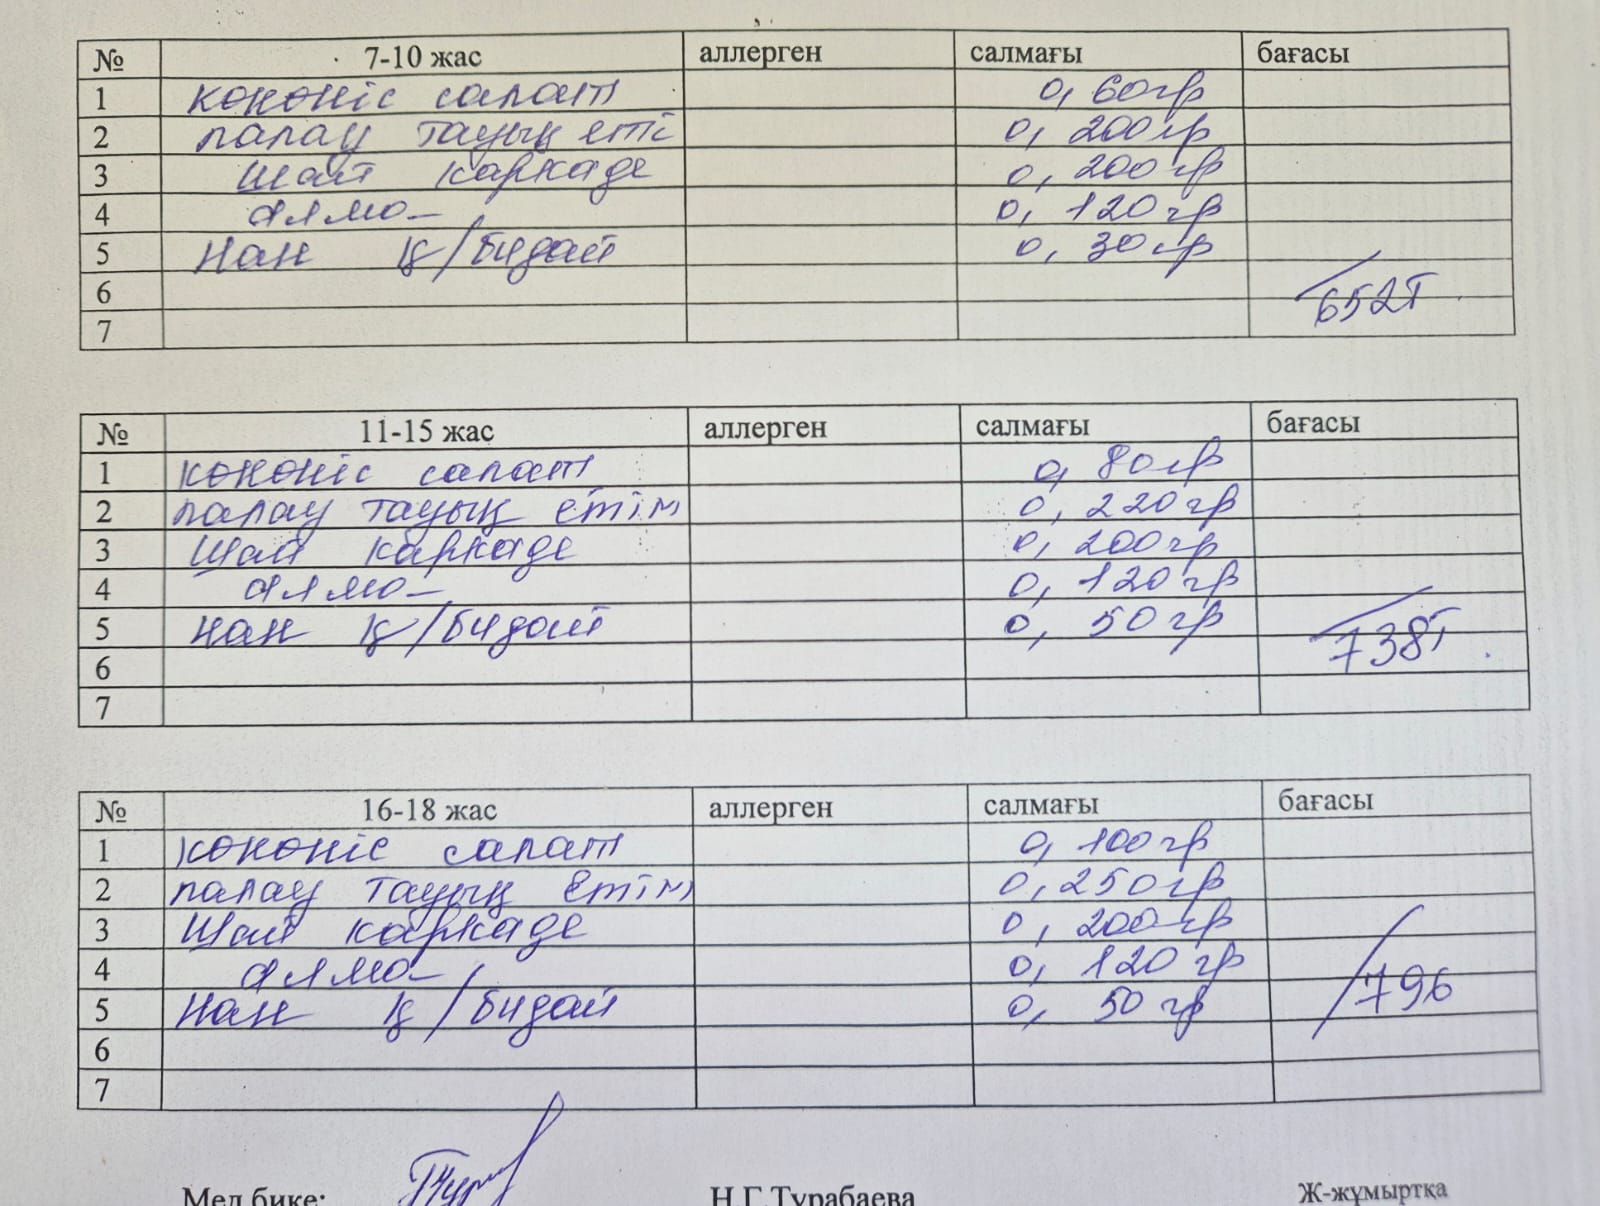 № 7-10 жас аллерген салмағы бағасы
1 көкөніс салат 0, 60гр
2 палау тауық еті 0, 200гр
3 шай каркаде 0, 200гр
4 алма 0, 120гр
5 Нан қ/бидай 0, 30гр
6 652т
7
№ 11-15 жас аллерген салмағы бағасы
1 көкөніс салат 0, 80гр
2 палау тауық етім 0, 220гр
3 Шай каркаде 0, 200гр
4 алма 0, 120гр
5 нан қ/бидай 0, 50гр
6 738т
7
№ 16-18 жас аллерген салмағы бағасы
1 көкөніс салат 0, 100гр
2 палау тауық етім 0,250гр
3 Шай каркаде 0, 200гр
4 алма 0, 120гр
5 Нан қ/бидай 0, 50 гр 796
6
7
Мед.бике: Н.Г.Турабаева Ж-жұмыртқа